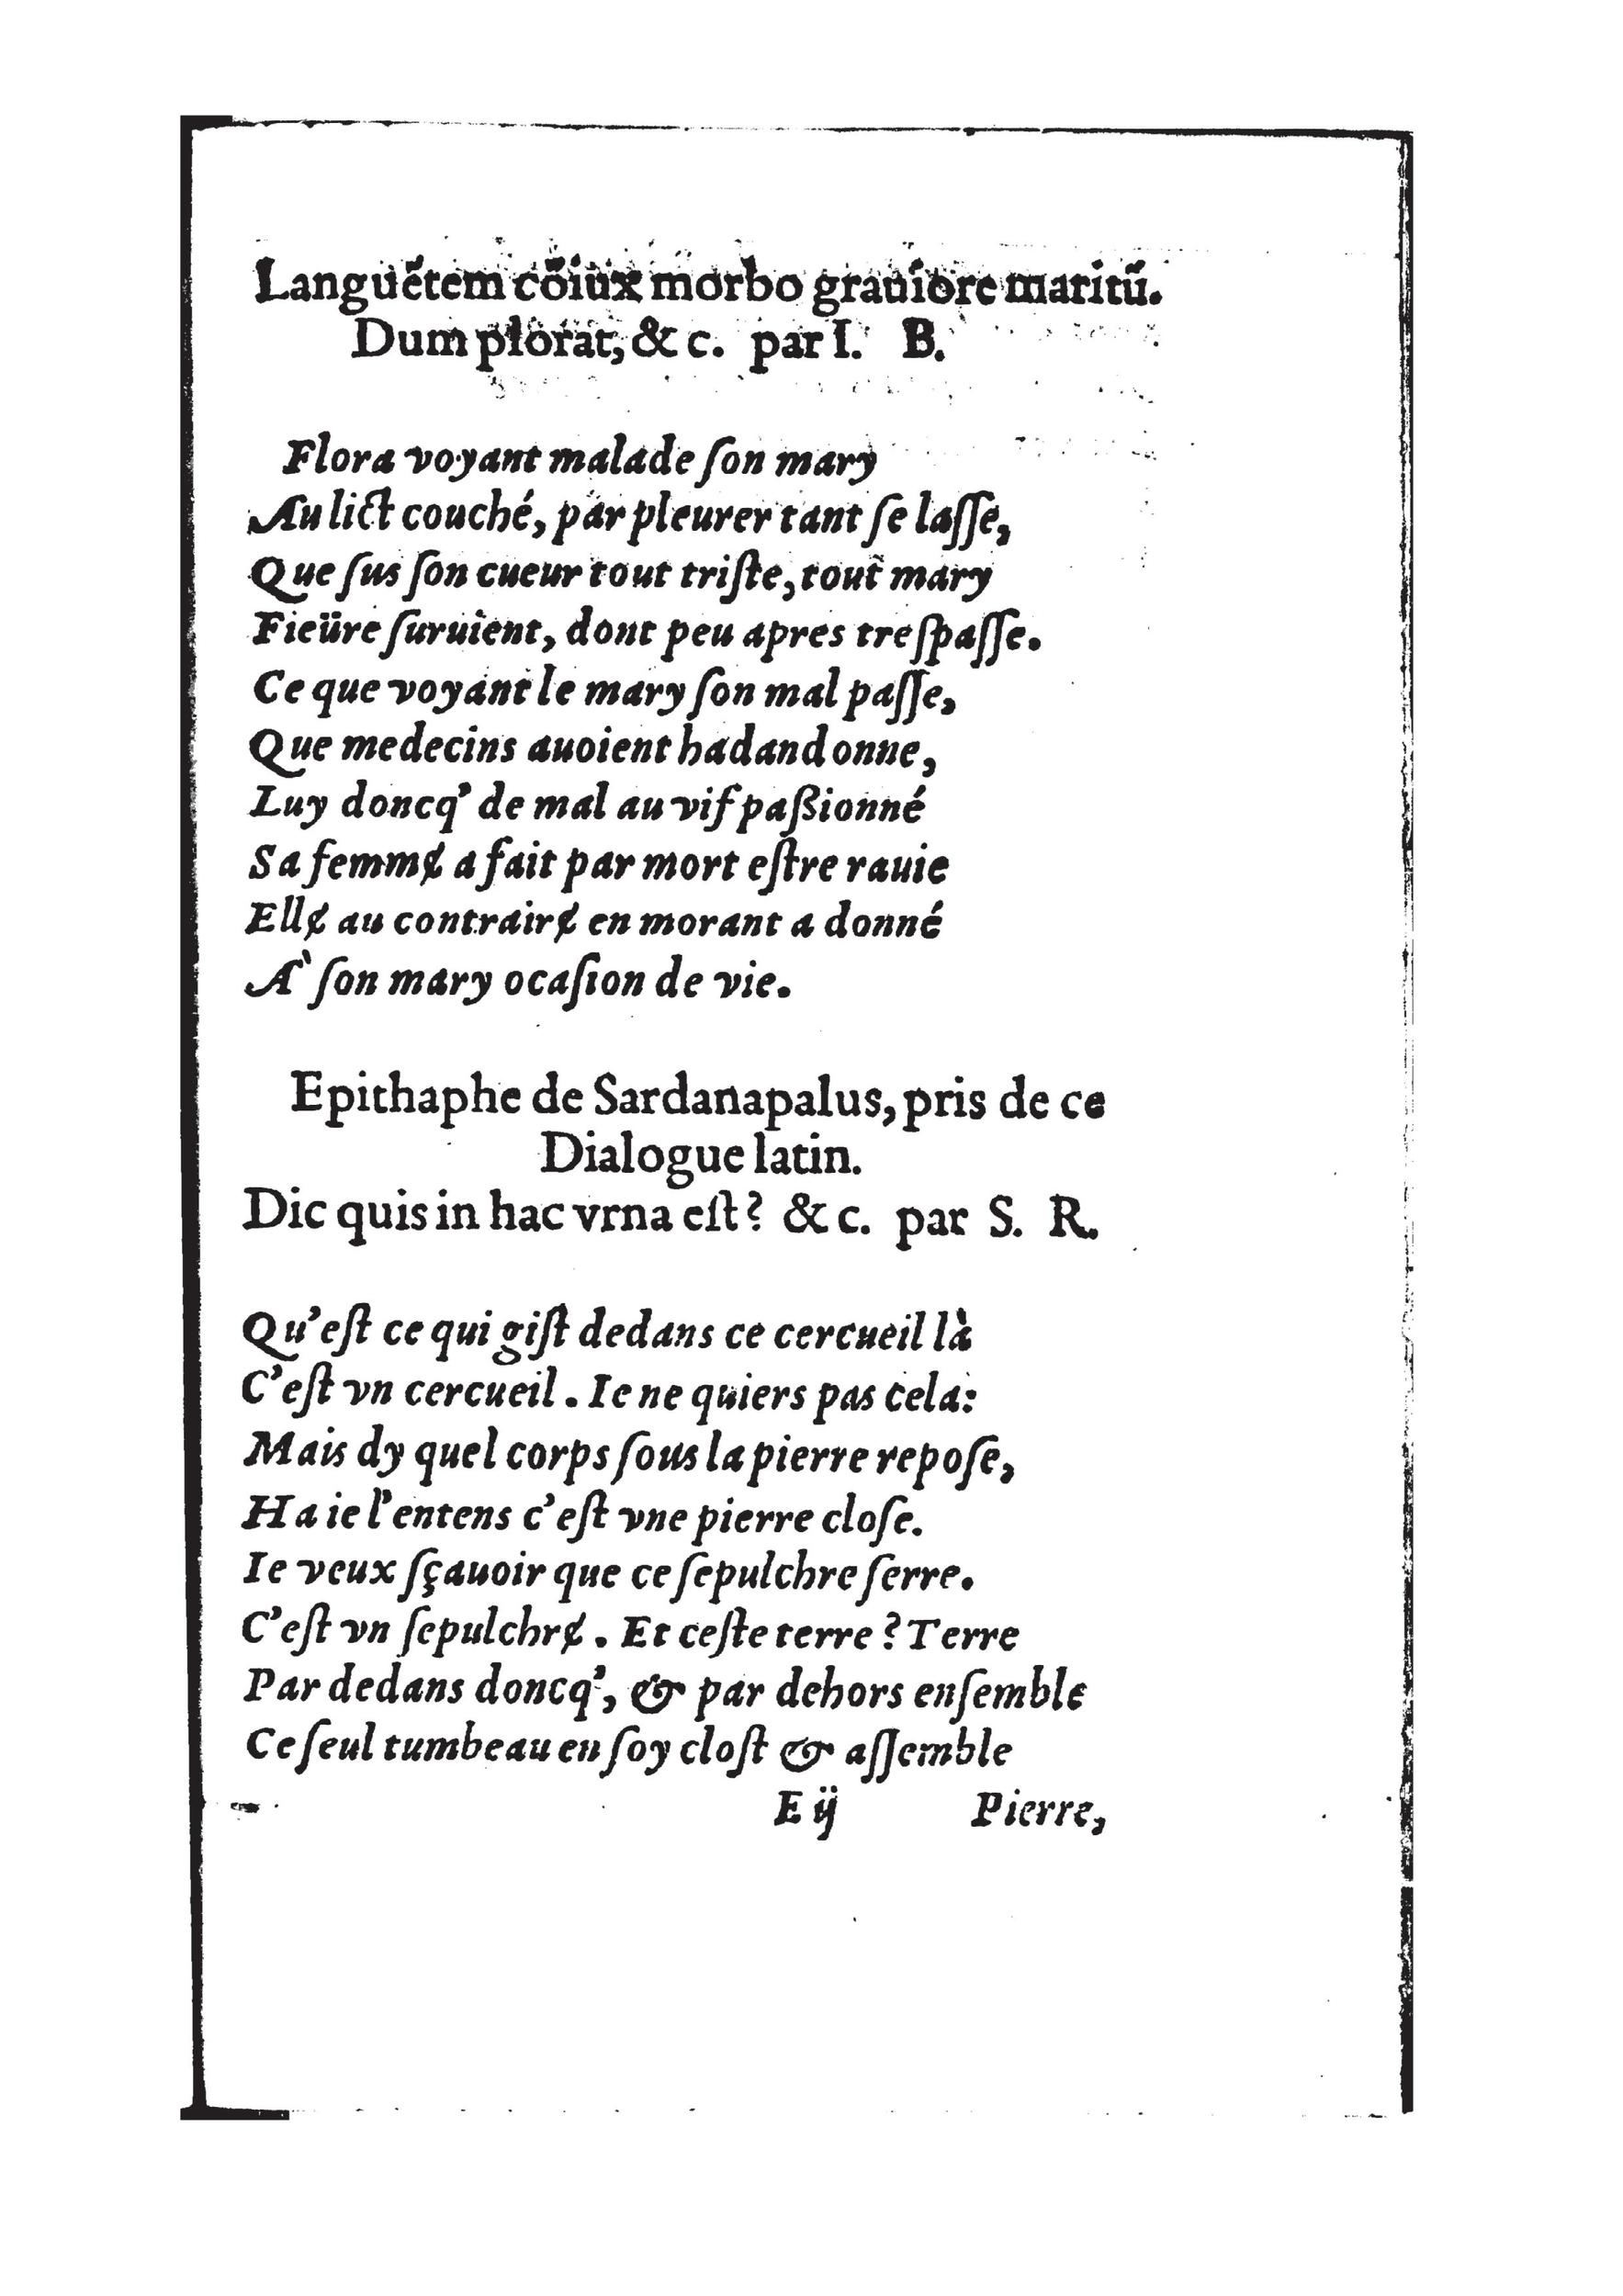 Languẽtem cõiux morbo grauiore maritũ.
Dum plorat, & c. par I. B.
Flora voyant malade ſon mary
Au lict couché, par pleurer tant ſe laſſe,
Que ſus ſon cueur tout triſte, tout mary
Fieüre ſuruient, dont peu apres treſpaſſe.
Ce que voyant le mary ſon mal paſſe,
Que medecins auoient hadandonne,
Luy doncq' de mal au vif paßionné
Sa femmɇ a fait par mort eſtre rauie
Ellɇ au contrairɇ en morant a donné
A` ſon mary ocaſion de vie.
Epithaphe de Sardanapalus, pris de ce
Dialogue latin.
Dic quis in hac vrna eſt? & c. par S. R.
Qu'eſt ce qui giſt dedans ce cercueil là
C'eſt vn cercueil. Ie ne quiers pas cela:
Mais dy quel corps ſous la pierre repoſe,
Ha ie l'entens c'eſt vne pierre cloſe.
Ie veux ſçauoir que ce ſepulchre ſerre.
C'eſt vn ſepulchrɇ. Et ceſte terre? Terre
Par dedans doncq', & par dehors enſemble
Ce ſeul tumbeau en ſoy cloſt & aſſemble
E ij Pierre,